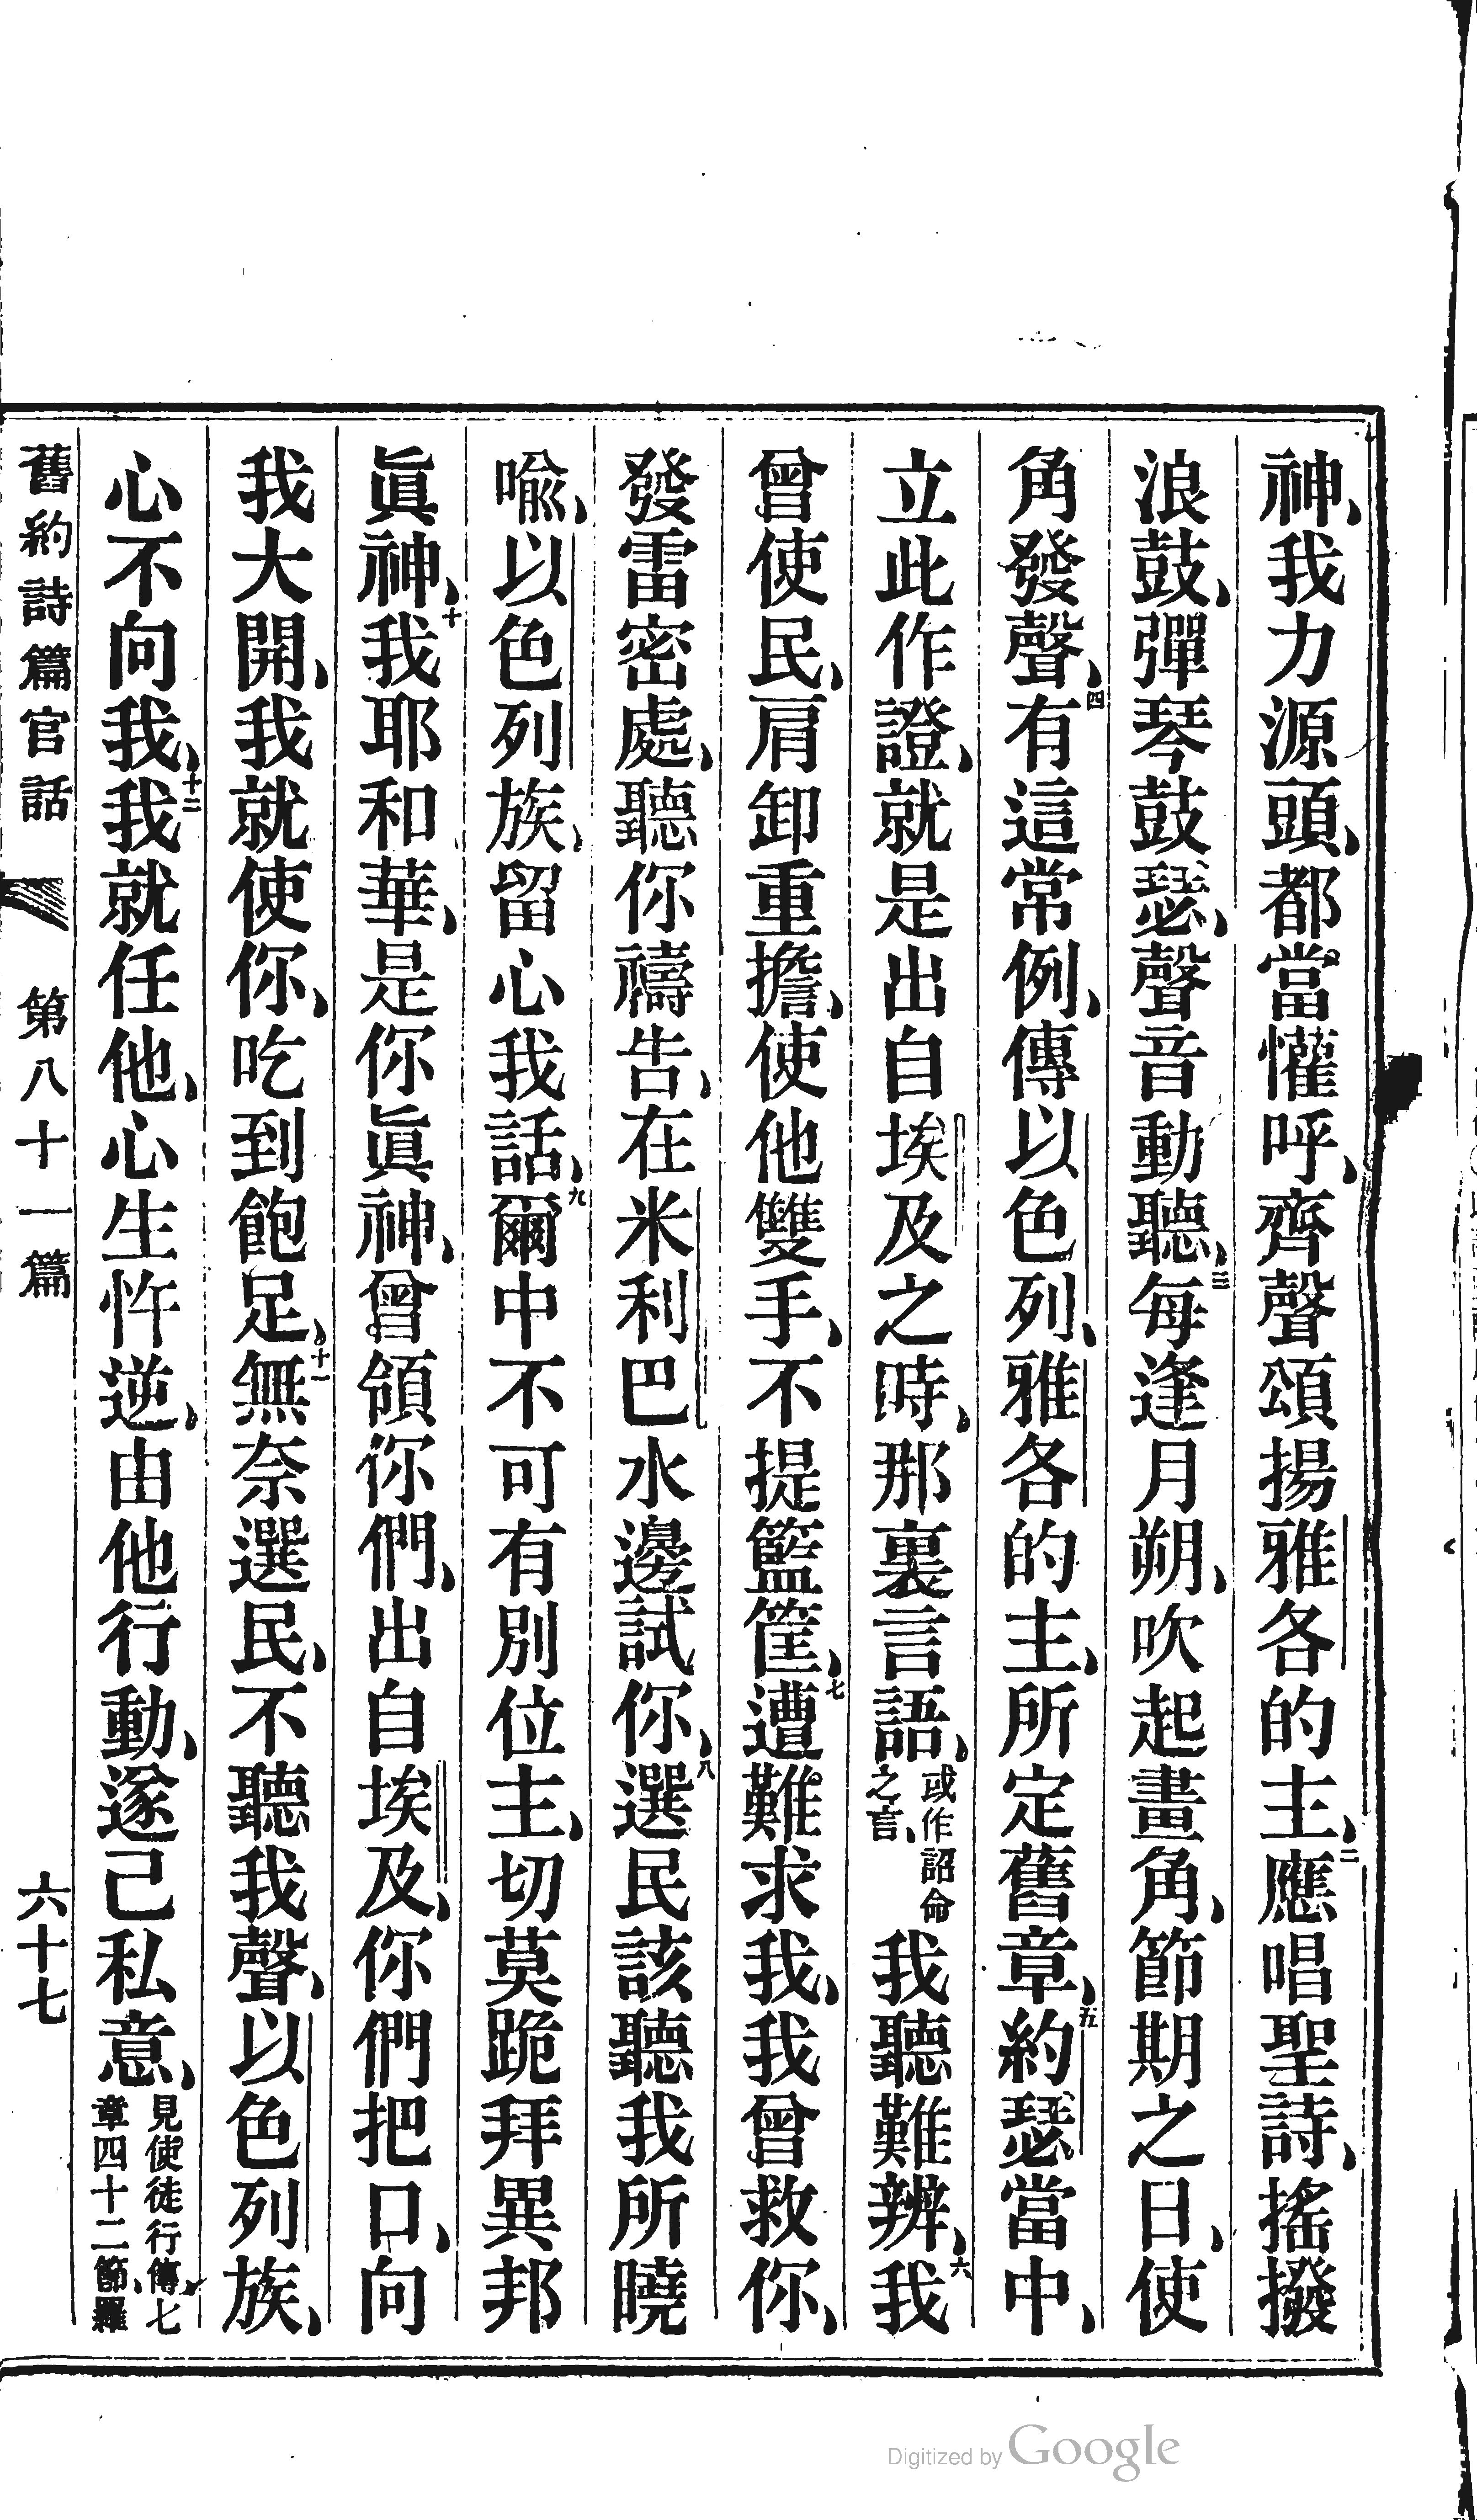 神、我力源頭、都當懽呼、齊聲頌揚雅各的主、二應唱聖詩、搖撥
浪鼓、彈琴鼓瑟、聲音動聽、三每逢月朔、吹起畫角、節期之日、使
角發聲、四有這常例、傳以色列、雅各的主、所定舊章、五約瑟當中、
立此作證、就是出自埃及之時、那裏言語、或作詔命之言、我聽難辨、六我
曾使民、肩卸重擔、使他雙手、不提籃筐、七遭難求我、我曾救你、
發雷密處、聽你禱告、在米利巴水邊試你、八選民該聽我所曉
喩、以色列族、留心我話、九爾中不可有別位主、切莫跪拜異邦
眞神、十我耶和華、是你眞神、曾領你們、出自埃及、你們把口、向
我大開、我就使你、吃到飽足、十一無奈選民、不聽我聲、以色列族、
心不向我、十二我就任他、心生忤逆、由他行動、遂己私意、見使徒行傳七章四十二節、羅
舊約詩篇官話 第八十一篇 六十七
Digitized by Google